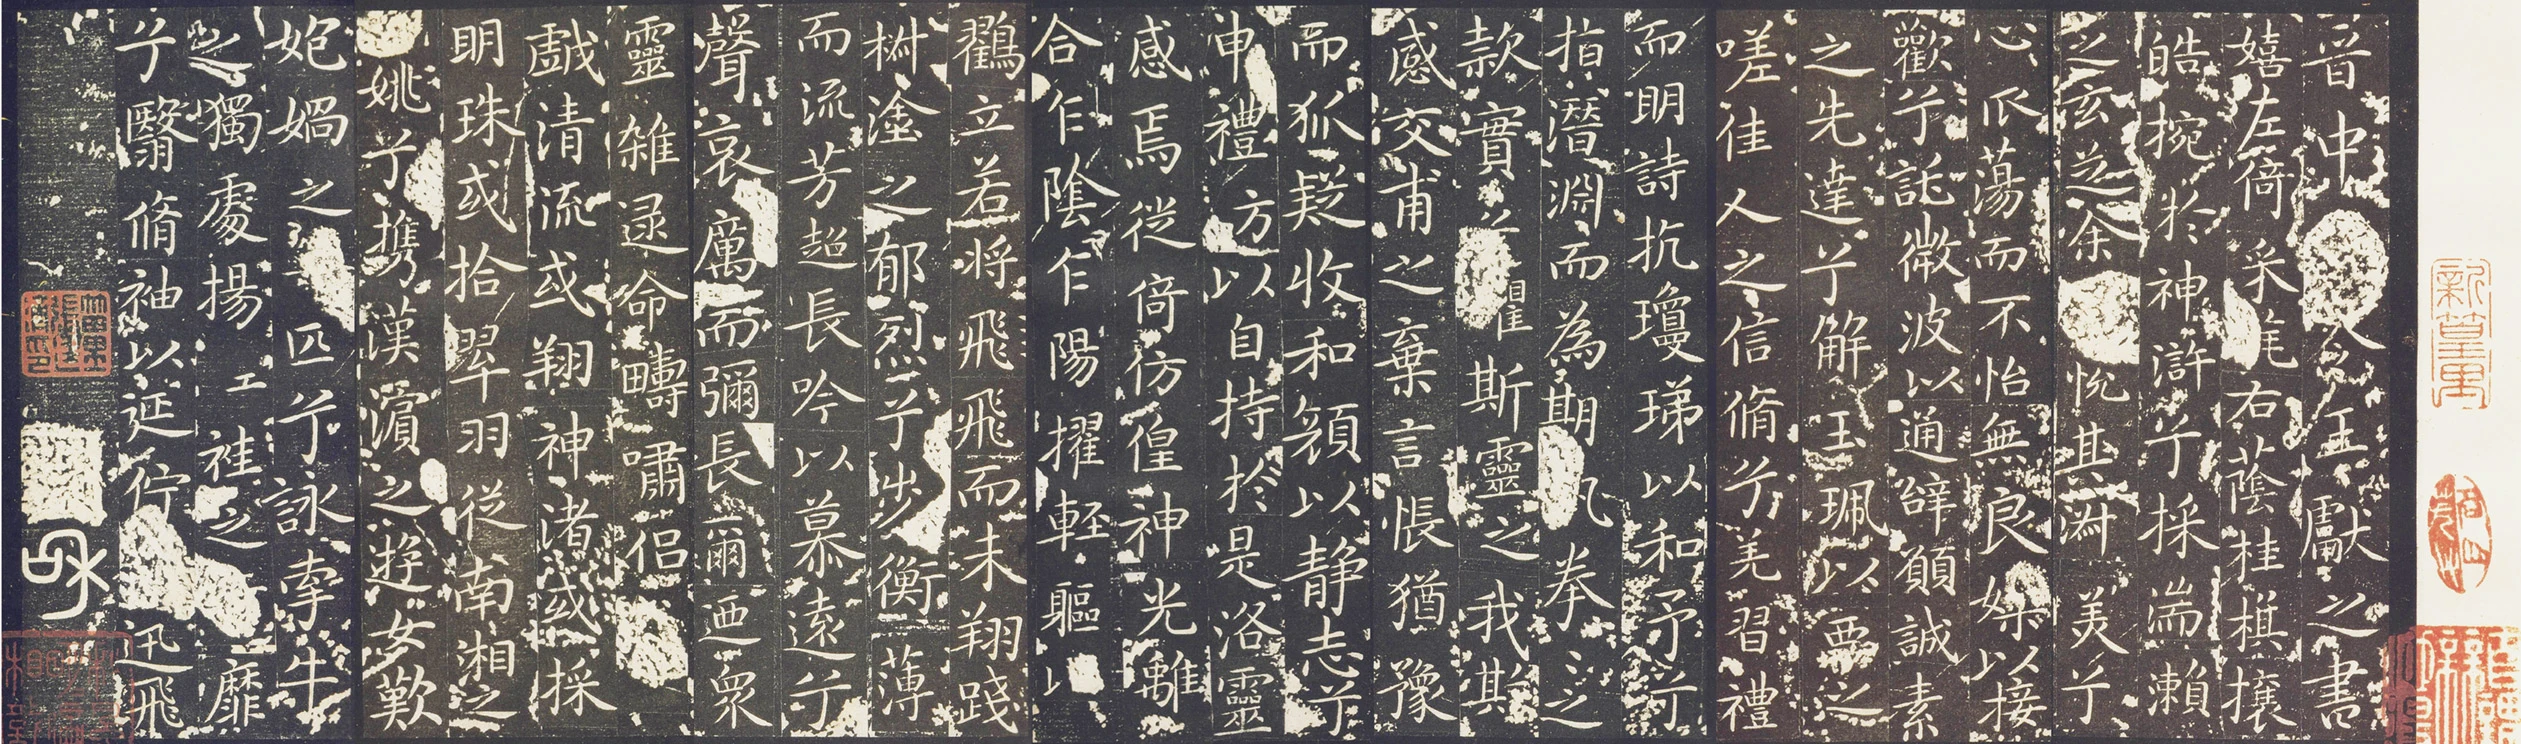 晉中令王獻之書
嬉左倚采旄右蔭桂棋攘
皓捥於神滸兮採湍瀬
之玄芝余悅其淑美兮
心爪蕩而不怡無良媒以接
歡兮託微波以通辝願誠素
之先達兮解玉珮以要之
嗟佳人之信脩兮羌習禮
而明詩抗瓊珶以和予兮
指潛淵而為期執拳之
款實兮懼斯靈之我欺
感交甫之棄言悵猶豫
而狐疑收和顏以静志兮
申禮方以自持於是洛靈
感焉徙倚彷徨神光離
合乍陰乍陽擢輕軀以
鸖立若將飛飛而未翔踐
椒塗之郁烈兮步衡薄
而流芳超長吟以慕遠兮
聲哀厲而彌長爾迺衆
靈雜遝命疇嘯侶
戲清流或翔神渚或採
明珠或拾翠羽從南湘之
姚兮攜漢濱之遊女歎
妃媧之匹兮詠牽牛
之獨處揚袿之靡
兮翳脩袖以延佇迅飛